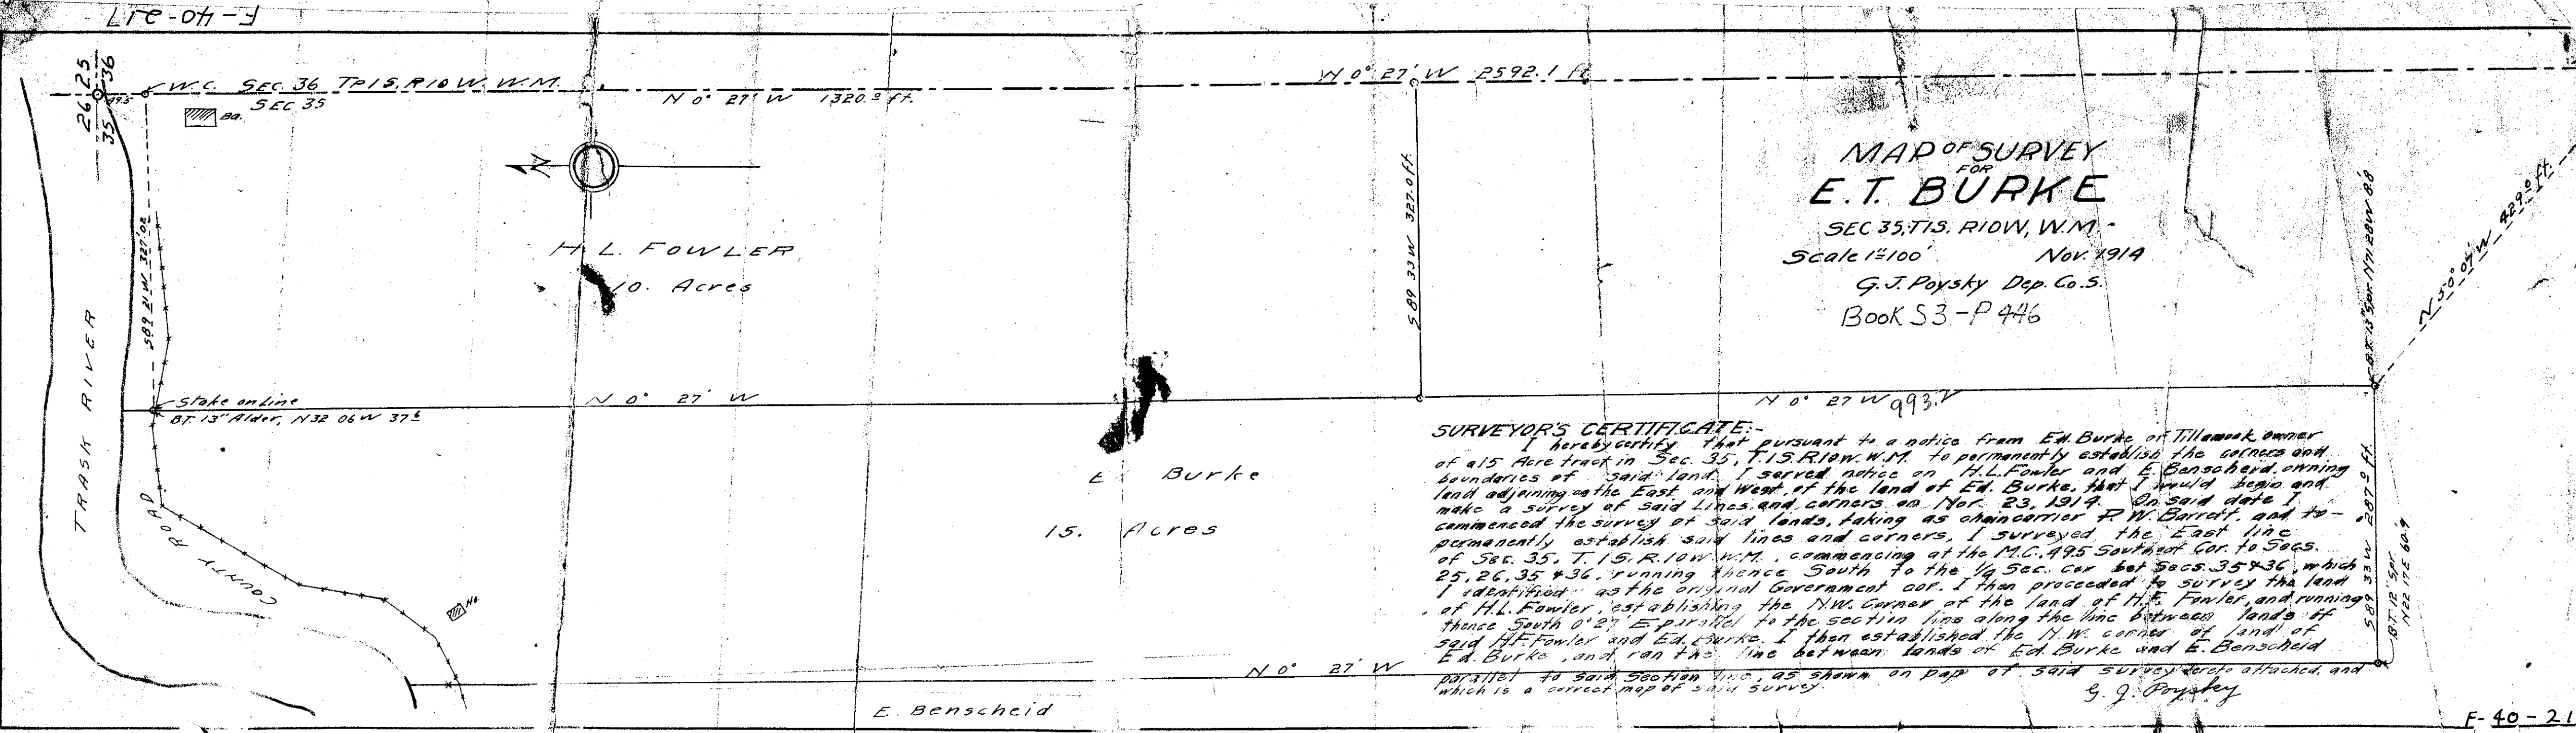 F-40-217
26 25
35 36
49.5
W.C. SEC. 36 TP 1 S. R 10 W. W.M.
SEC 35
Ba.
N 0° 27' W 1320.0 ft.
N 0° 27' W 2592.1 ft
N
S 89 21 W 327.02
H. L. FOWLER
10. Acres
S 89 33 W 327.0 ft.
MAP OF SURVEY
FOR
E.T. BURKE
SEC 35, T1S. R10W, W.M.
Scale 1"=100' Nov. 1914
G.J. Poysky Dep. Co. S.
Book S3-P 446
B.T. 13" Spr. N71 28W 8.8
N 50° 04' W 429.0 ft.
TRASK RIVER
COUNTY ROAD
Stake on Line
B.T. 13" Alder, N32 06 W 37.6
N 0° 27' W
N 0° 27 W 993.
Ho.
E Burke
15. Acres
N 0° 27' W
E. Benscheid
S 89 33 W 287.0 ft.
B.T. 12" Spr.
N22 17 E 60.9
SURVEYOR'S CERTIFICATE:-
I hereby certify that pursuant to a notice from Ed. Burke of Tillamook, owner
of a 15 Acre tract in Sec. 35, T.1S. R10W. W.M. to permanently establish the corners and
boundaries of said land, I served notice on H.L. Fowler and E. Benscheid, owning
land adjoining on the East and West, of the land of Ed. Burke, that I would begin and
make a survey of said Lines and corners on Nov. 23, 1914. On said date I
commenced the survey of said lands, taking as chaincarrier P. W. Barrett, and to-
permanently establish said lines and corners, I surveyed the East line
of Sec. 35, T. 1S. R. 10W. W.M., commencing at the M.C. 495 South of Cor. to Secs.
25, 26, 35 & 36, running thence South to the 1/4 Sec. cor bet Secs. 35 & 36, which
I identified as the original Government cor. I then proceeded to survey the land
of H.L. Fowler, establishing the N.W. Corner of the land of H.F. Fowler, and running
thence South 0° 27' E parallel to the section line along the line between lands of
said H.F. Fowler and Ed. Burke. I then established the N.W. corner of land of
Ed. Burke, and ran the line between lands of Ed. Burke and E. Benscheid
parallel to said Section line, as shown on pap of said survey hereto attached, and
which is a correct map of said survey.
G. J. Poysky
F-40-21